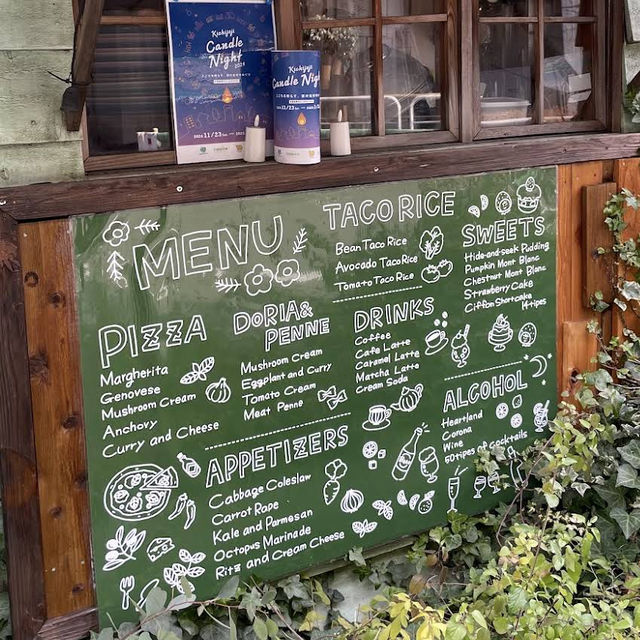 Kichijoji
Candle
Night
2024 11/23
Kichijoji
Candle Nigh
MENU
TACO RICE
Bean Taco Rice
Avocado Taco Rice
Tomato Taco Rice
SWEETS
Hide-and-seek Pudding
Pumpkin Mont Blanc
Chestnut Mont Blanc
Strawberry Cake
Ciffon Shortcake
14 tipes
PIZZA
Margherita
Genovese
Mushroom Cream
Anchovy
Curry and Cheese
DORIA&
PENNE
Mushroom Cream
Eggplant and Curry
Tomato Cream
Meat Penne
DRINKS
Coffee
Cafe Latte
Caramel Latte
Matcha Latte
Cream Soda
ALCOHOL
Heartland
Corona
Wine
60 tipes of cocktails
APPETIZERS
Cabbage Coleslaw
Carrot Rape
Kale and Parmesan
Octopus Marinade
Rits and Cream Cheese